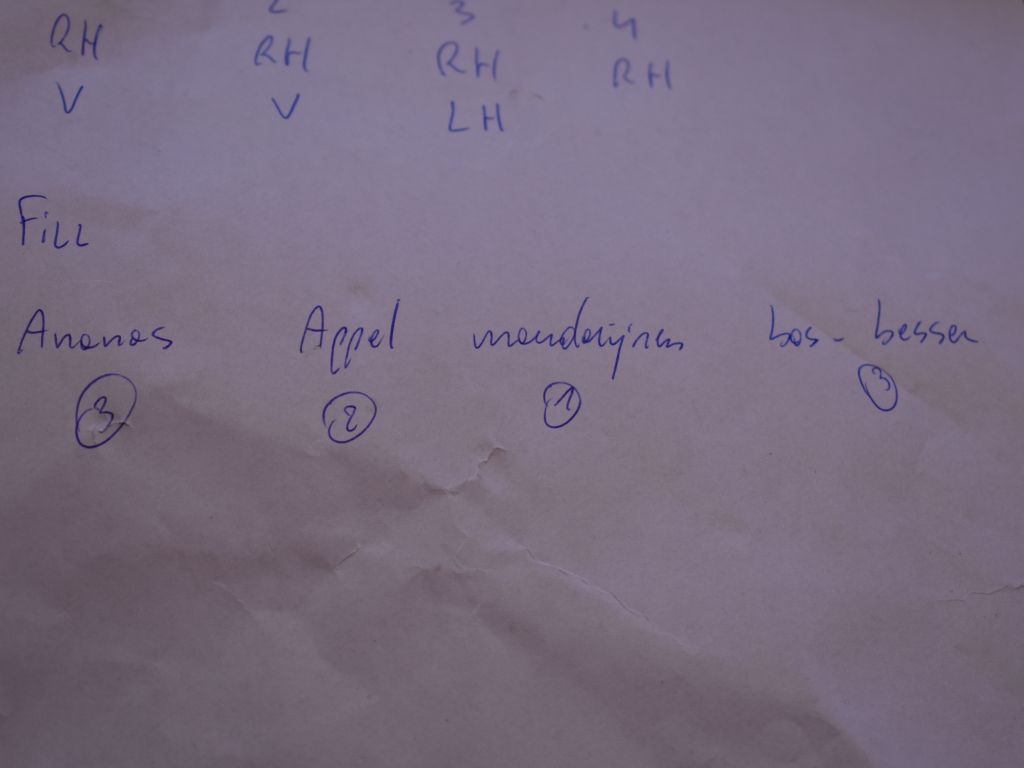 2 3 4
RH RH RH RH
V V LH
Fill
Ananas Appel mandarijnen bos-bessen
3 2 1 3